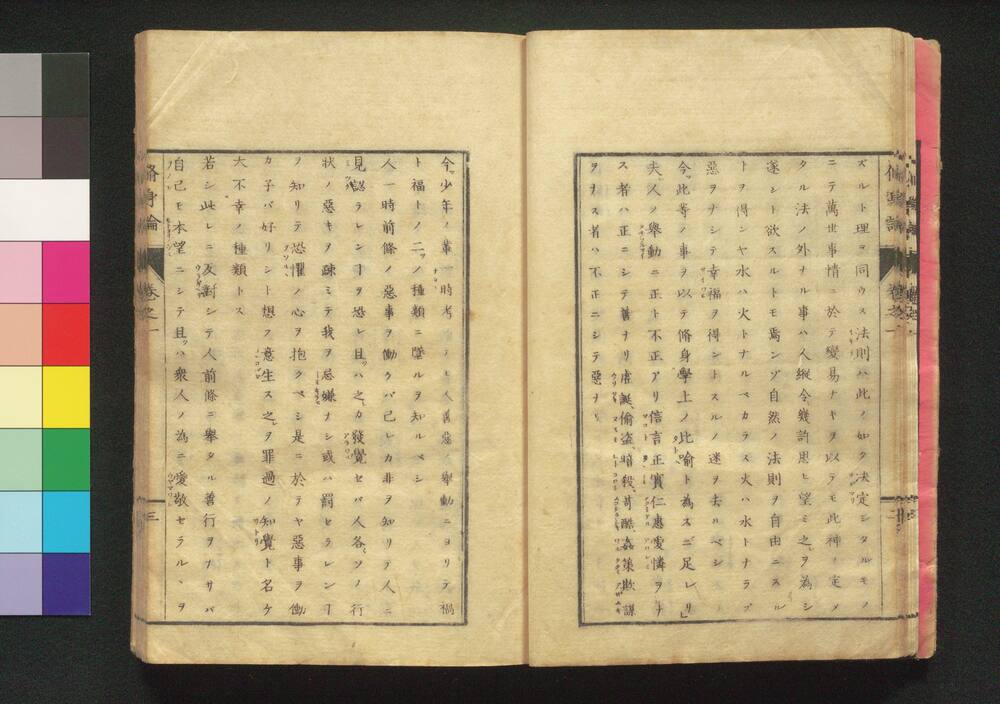 ズルト理ヲ同ウス法則ハ此ノ如ク決定シタルモノ
ニテ萬世事情ニ於テ變易ナキヲ以テモ此神ノ定メ
タル法ノ外ナル事ハ人縦令幾許思ヒ望ミ之ヲ為シ
遂ント欲スルトモ焉ンゾ自然ノ法則ヲ自由ニスル
トヲ得ンヤ水ハ火トナルベカラス火ハ水トナラズ
惡ヲナシテ幸福ヲ得ントスルノ迷ヲ去ルベシ
今此等ノ事ヲ以テ脩身學上ノ比喻ト為スニ足レリ
夫人ノ擧動ニ正ト不正アリ信言正實仁惠愛憐ヲナ
ス者ハ正ニシテ善ナリ虚誕偸盗暗殺苛酷姦策欺謀
ヲナス者ハ不正ニシテ惡ナリ
今少年ノ輩一時考ヒ人善惡ノ擧動ニヨリテ禍
ト福トノ二ツノ種類ニ墮ルヲ知ルベシ
人一時前條ノ惡事ヲ働クバ己レカ非ヲ知リテ人ニ
見認ラレンヿヲ恐レ且ツハ之カ發覺セバ人各ソノ行
狀ノ惡キヲ疎ミテ我ヲ忌嫌ナシ或ハ罰セラレンヿ
ヲ知リテ恐懼ノ心ヲ抱クベシ是ニ於テヤ惡事ヲ働
カ子バ好リシト想フ意生ス之ヲ罪過ノ知覺ト名ケ
大不幸ノ種類トス
若シ此レニ反對シテ人前條ニ擧タル善行ヲナサバ
自己モ本望ニシテ且ツハ衆人ノ為ニ愛敬セラルヽヲ
脩身論 卷之一 三